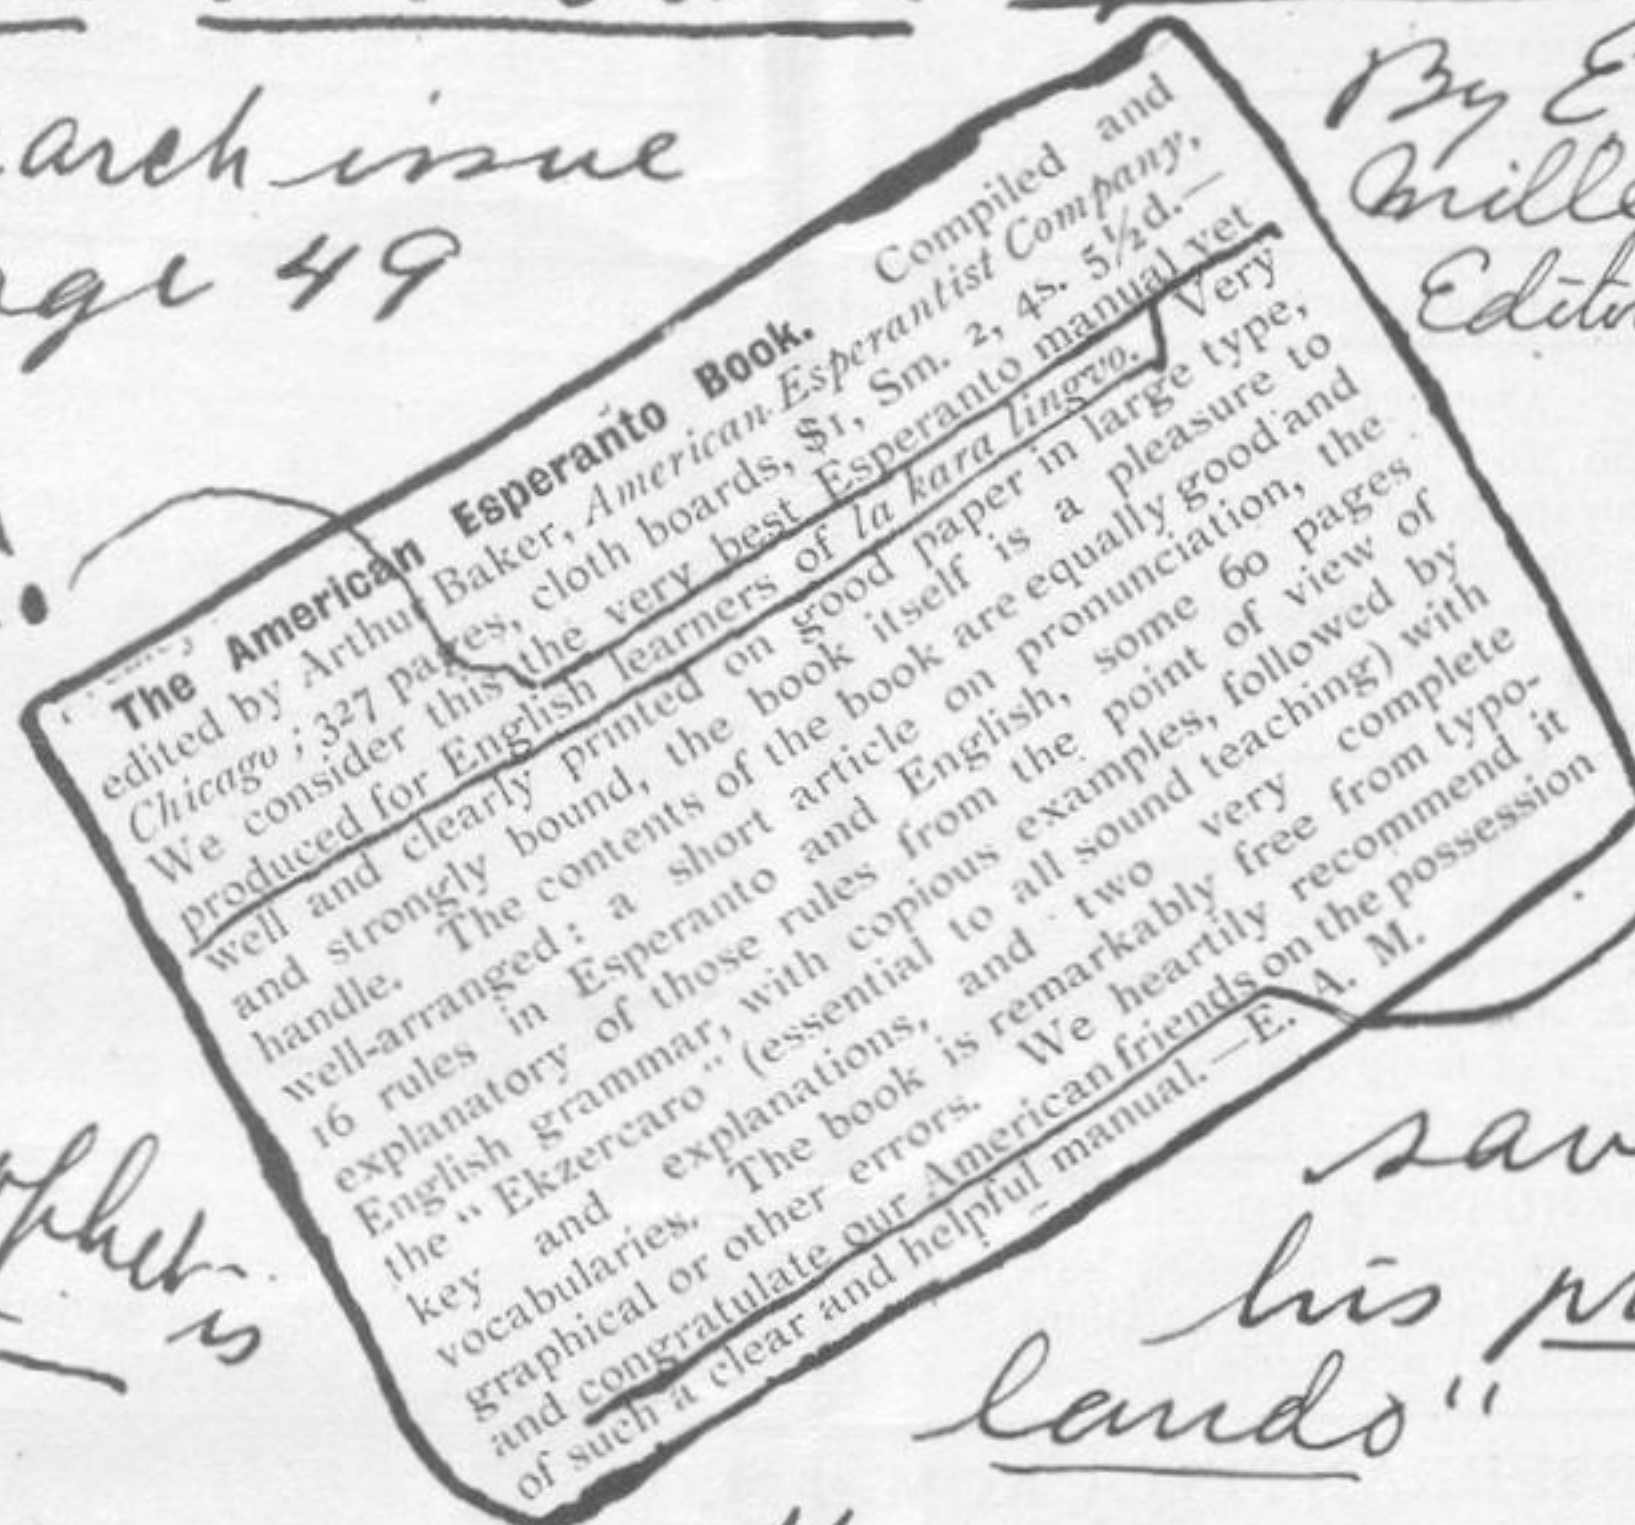 arch issue
age 49
!
By E
Mille
Edito
The American Esperanto Book. Compiled and
edited by Arthur Baker, American Esperantist Company,
Chicago ; 327 pages, cloth boards, $1, Sm. 2, 4s. 5½d.—
We consider this the very best Esperanto manual yet
produced for English learners of la kara lingvo. Very
well and clearly printed on good paper in large type,
and strongly bound, the book itself is a pleasure to
handle. The contents of the book are equally good and
well-arranged : a short article on pronunciation, the
16 rules in Esperanto and English, some 60 pages
explanatory of those rules from the point of view of
English grammar, with copious examples, followed by
the “ Ekzercaro ” (essential to all sound teaching) with
key and explanations, and two very complete
vocabularies. The book is remarkably free from typo-
graphical or other errors. We heartily recommend it
and congratulate our American friends on the possession
of such a clear and helpful manual.—E. A. M.
ophet
is
sav
his
lando"